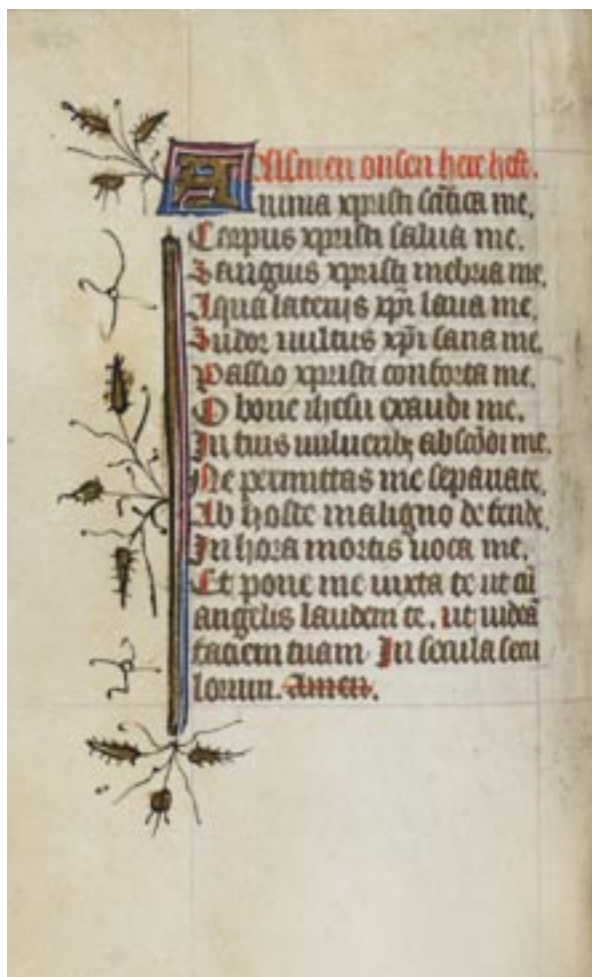 Alsmen onsen here heft.
Anima xpristi sc̄tica me.
Corpus xpristi salua me.
Sanguis xpristi inebria me.
Aqua lateris xp̄i laua me.
Sudor uultus xp̄i sana me.
Passio xpristi conforta me.
O bone ihesu exaudi me.
In tuis uulneribꝫ absco̅di me.
Ne permittas me separate.
Ab hoste maligno defende.
In hora mortis uoca me.
Et pone me iuxta te ut cū
angelis laudem te. ut uideā
faciem tuam In secula secu
lorum. Amen.